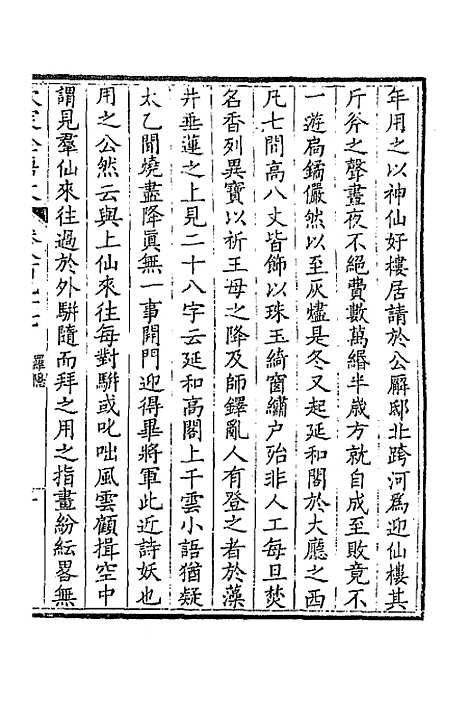 年用之以神仙好樓居請於公廨邸北跨河爲迎仙樓其
斤斧之聲晝夜不絕費數萬緡半歲方就自成至敗竟不
一遊扃鐍儼然以至灰燼是冬又起延和閣於大廳之西
凡七間高八丈皆飾以珠玉綺窗繡户殆非人工每旦焚
名香列異寶以祈王母之降及師鐸亂人有登之者於藻
井垂蓮之上見二十八字云延和高閣上干雲小語猶疑
太乙聞燒盡降眞無一事開門迎得畢將軍此近詩妖也
用之公然云與上仙來往每對駢或叱咄風雲顧揖空中
謂見羣仙來往過於外駢隨而拜之用之指畫紛紜畧無
羅隱